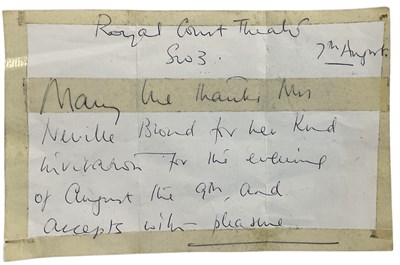 Royal Court Theatre
SW3.
7th August.
Many thanks Mrs
Neville Blond for her kind
invitation for the evening
of August the 9th, and
accepts with pleasure.